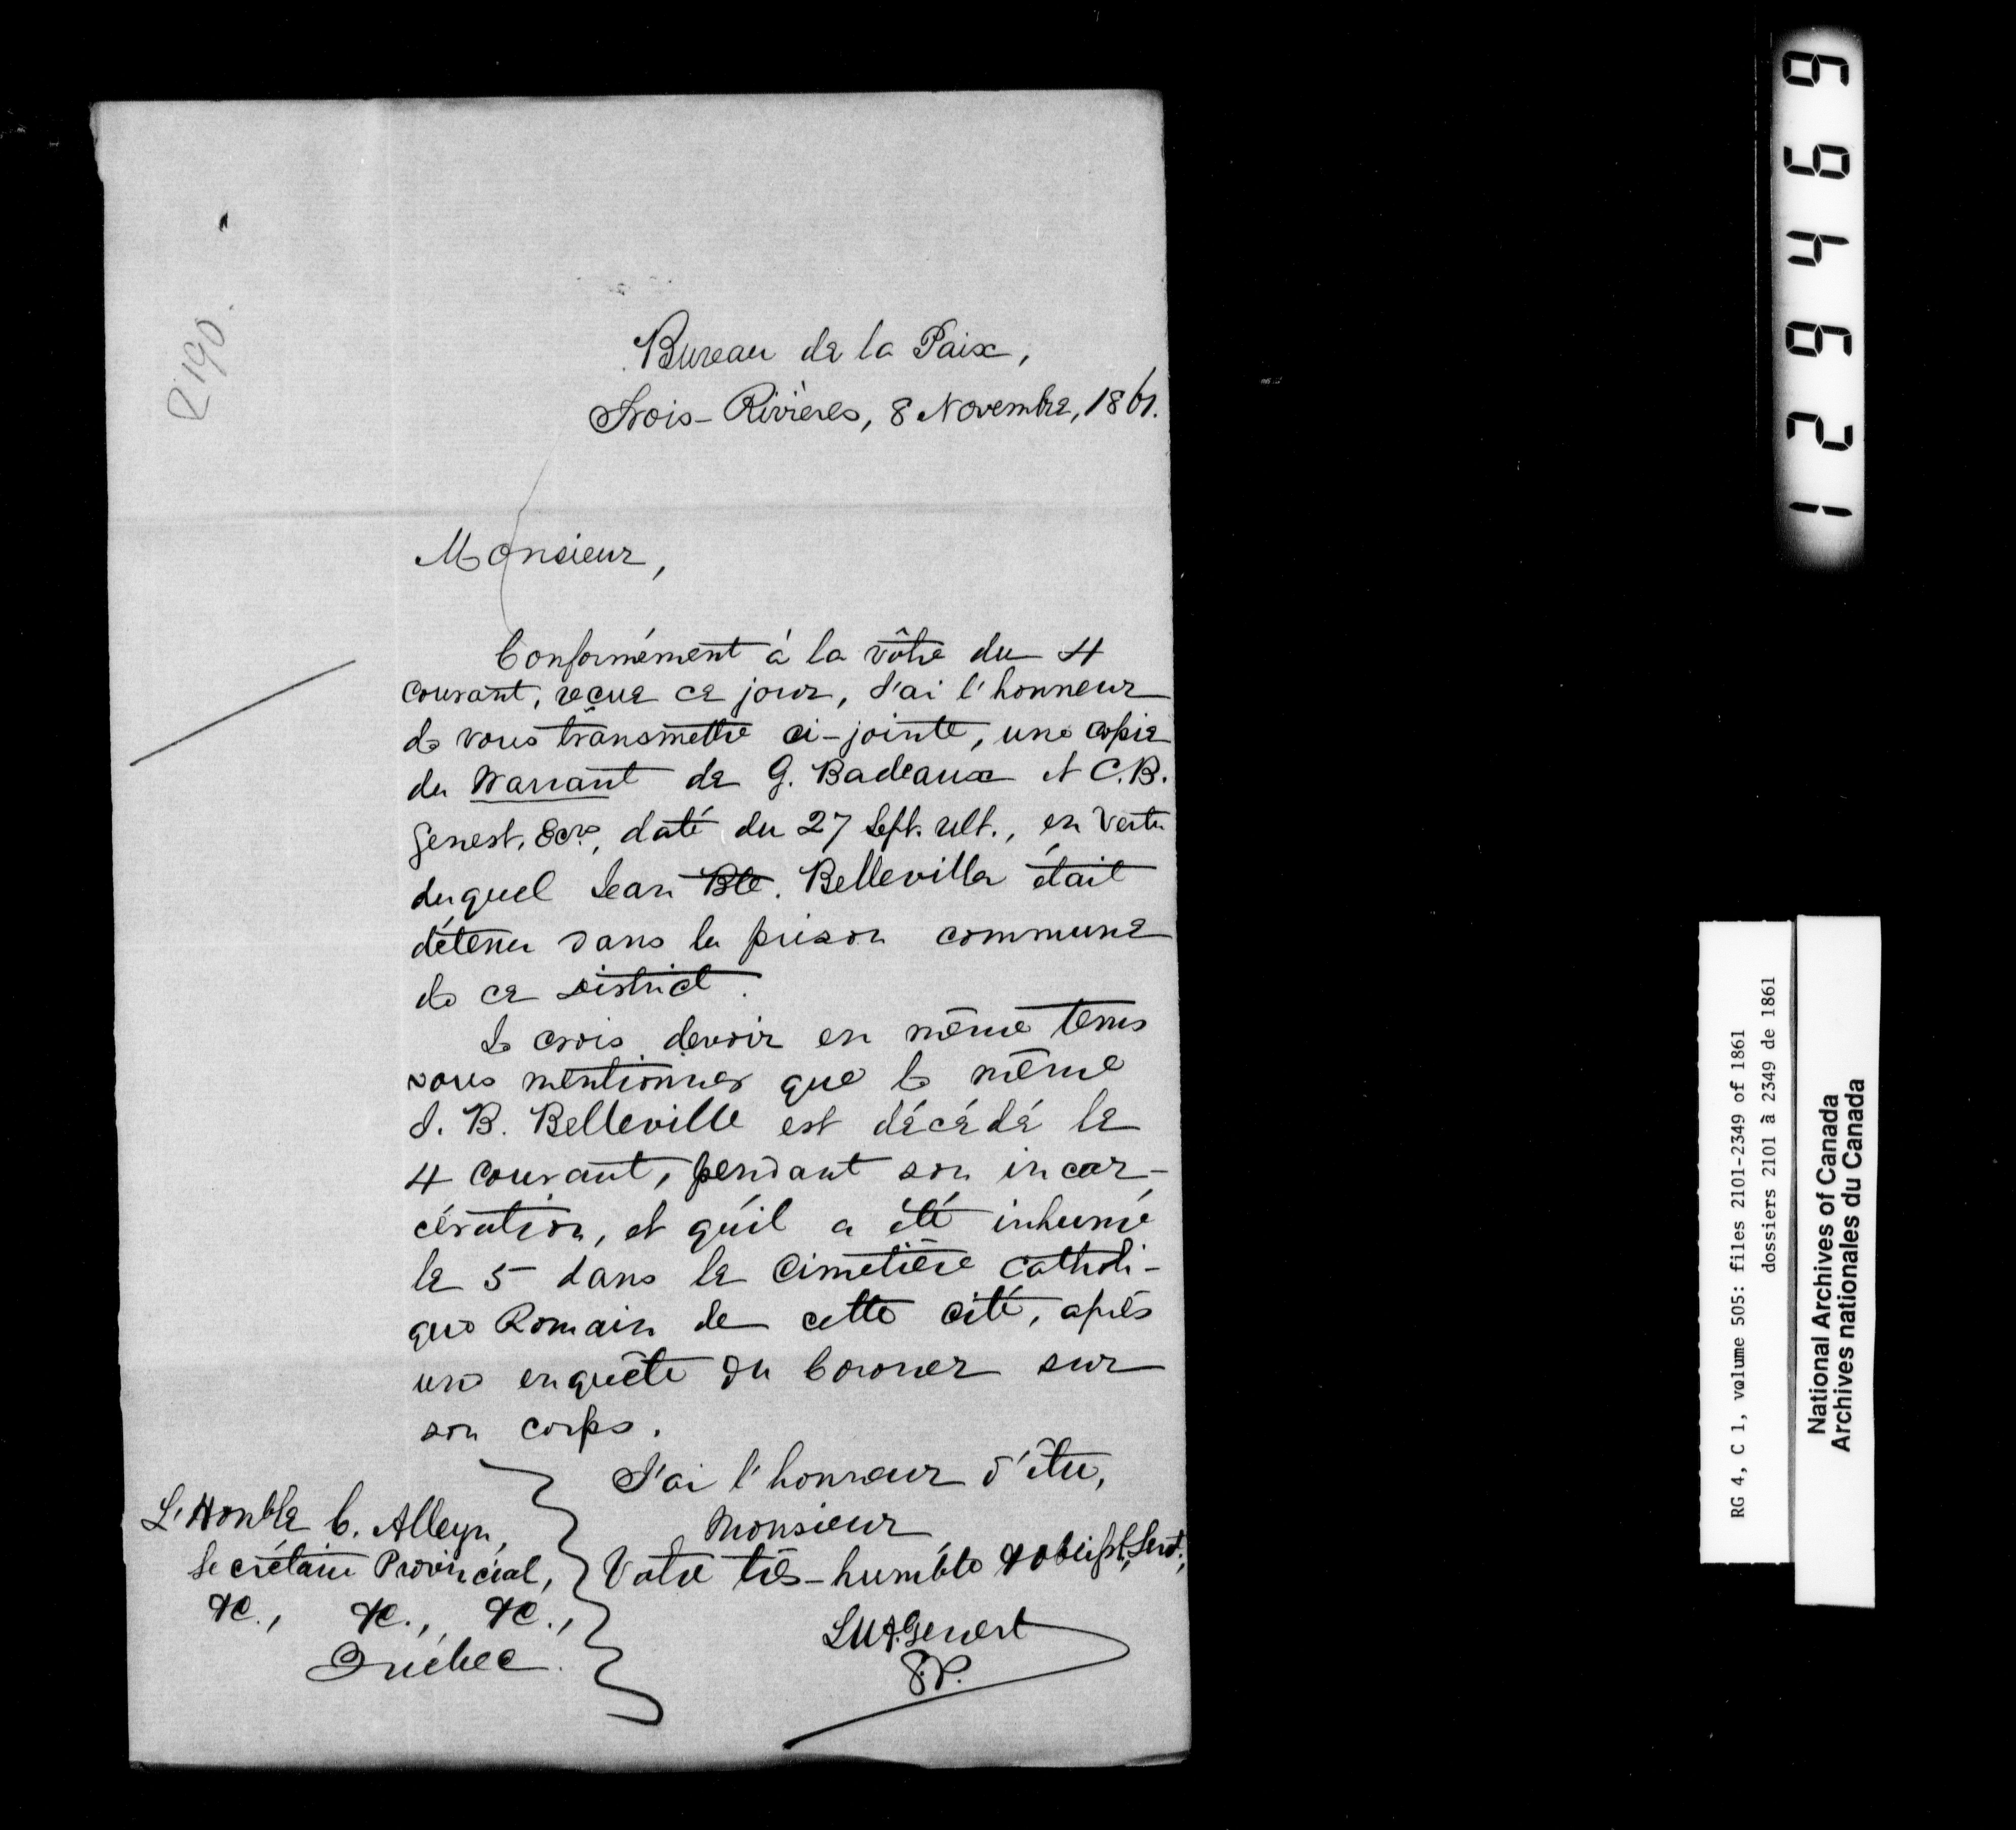 2190.
Bureau de la Paix,
Trois-Rivières, 8 Novembre, 1861.
Monsieur,
Conformément à la vôtre du 4
courant, reçue ce jour, J'ai l'honneur
de vous transmettre ci-jointe, une copie
du Warrant de G. Badeaux et C.B.
Genest, Ecrs, daté du 27 Sept. ult., en vertu
duquel Jean Bte. Belleville était
détenu dans la prison commune
de ce District.
Je crois devoir en même tems
vous mentionner que le même
J. B. Belleville est décédé le
4 courant, pendant son incar-
cération, et qu'il a été inhumé
le 5 dans le Cimetière catholi-
que Romain de cette cité, après
une enquête du Coroner sur
son corps.
J'ai l'honneur d'être,
Monsieur
Votre très-humble & obéisst. Servt.,
L.U.A. Genest
G.P.
L'Honble C. Alleyn,
Secrétaire Provincial,
&c., &c., &c.,
Québec.
129469
RG 4, C 1, volume 505: files 2101-2349 of 1861
dossiers 2101 à 2349 de 1861
National Archives of Canada
Archives nationales du Canada